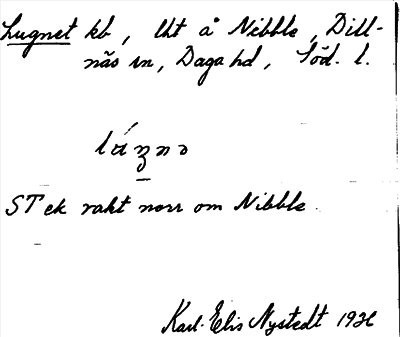 Lugnet kb, lht å Nibble, Dill-
näs sn, Daga hd, Söd. l.
ST ek rakt norr om Nibble.
Karl-Elis Nystedt 1936